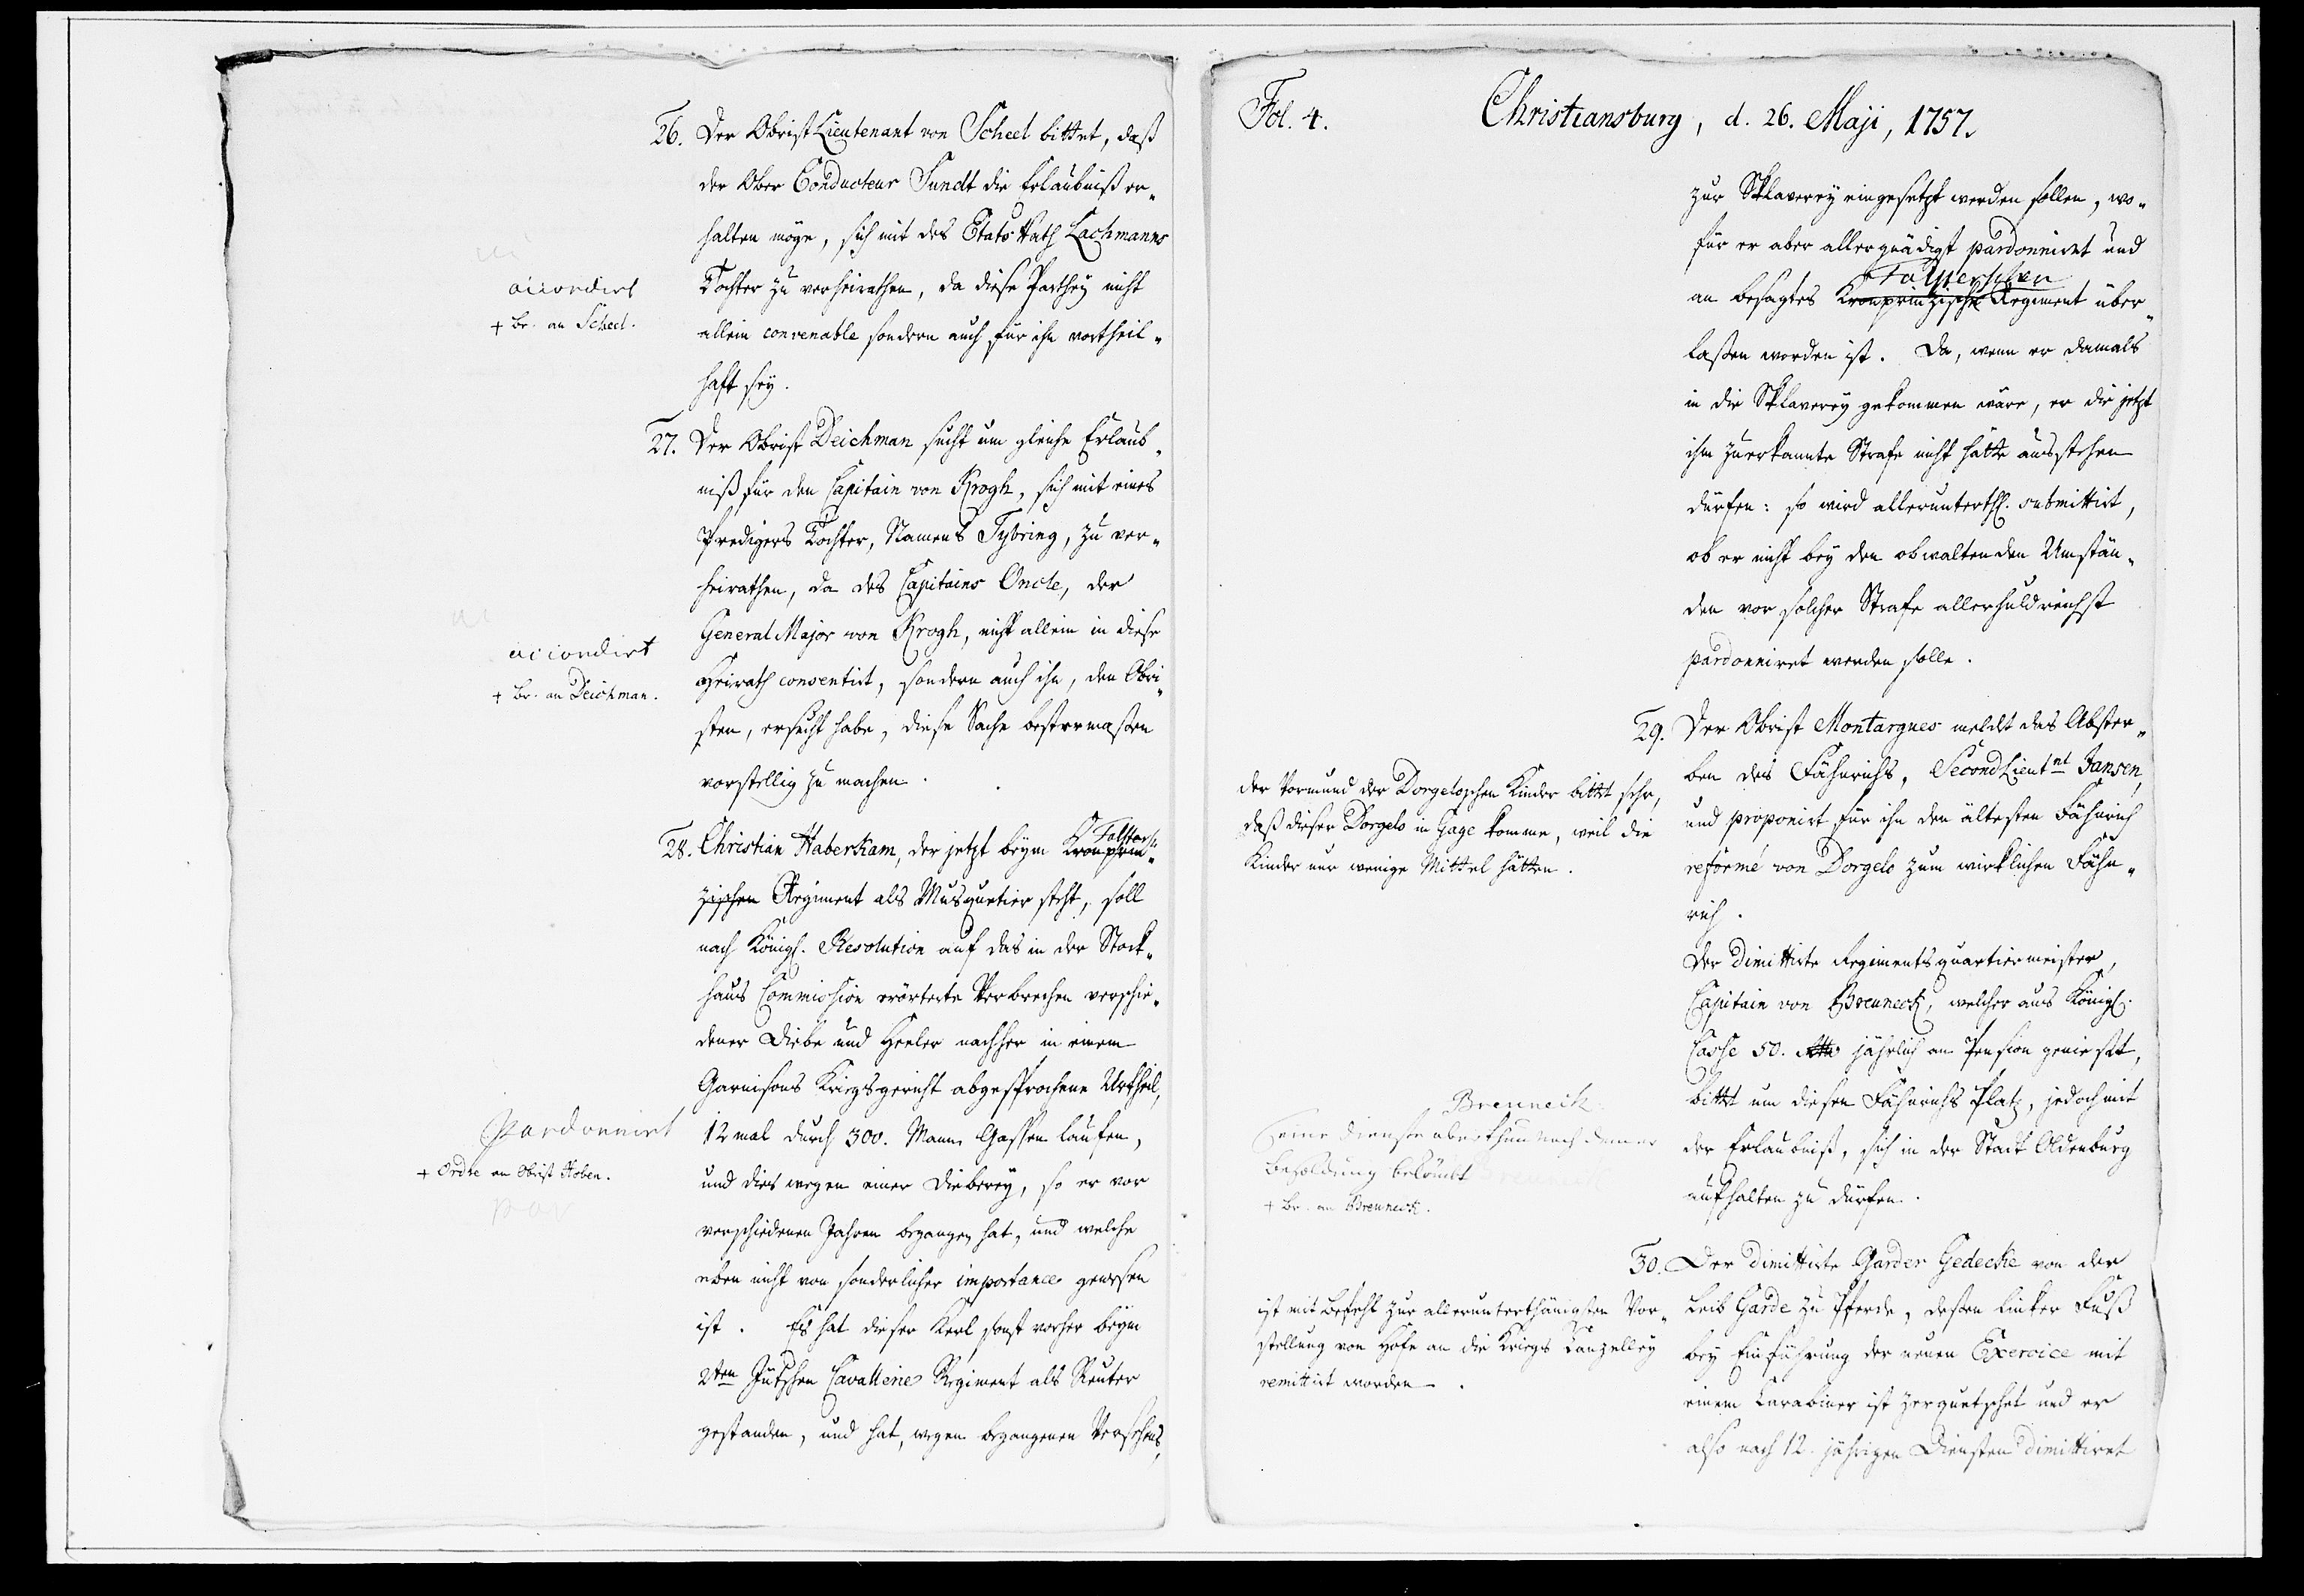 26. Der Obrist Lieutenant von Scheel bittet, daß
der Ober Conducteur Sundt die Erlaubniß er-
halten möge, sich mit des Etats Rath Lachmanns
Tochter zu verheirathen, da diese Parthey nicht
allein convenable sondern auch für ihn vortheil-
haft sey.
accordirt
+ Br. an Scheel.
27. Der Obrist Deichman sucht um gleiche Erlaub-
niß für den Capitain von Krogh, sich mit eines
Predigers Tochter, Namens Tybring, zu ver-
heirathen, da des Capitains Oncle, der
General Major von Krogh, nicht allein in diese
Heirath consentirt, sondern auch ihn, den Obri-
sten, ersucht habe, diese Sache bestermaßen
vorstellig zu machen.
accordirt
+ Br. an Deichman.
28. Christian Haberkam, der jetzt beym Kronprin-
Falstersch
zischen Regiment als Musquetier steht, soll
nach Königl. Resolution auf das in der Stock-
haus Commission erörterte Verbrechen verschie-
dener Diebe und Heeler nachher in einem
Garnisons Kriegsgericht abgesprochene Urtheil,
12 mal durch 300. Mann Gassen laufen,
und dies wegen einer Dieberey, so er vor
verschiedenen Jahren begangen hat, und welche
eben nicht von sonderlicher importance gewesen
ist. Es hat dieser Kerl sonst vorher beym
2ten Jütschen Cavallerie Regiment als Reuter
gestanden, und hat, wegen begangenen Versehens,
pardonnirt
+ Ordre an Obrist Hoben.
Fol. 4.
Christiansburg, d. 26. Maji, 1757.
zur Sklaverey eingesetzt werden sollen, wo-
für er aber allergnädigst pardonniret und
Falsterschen
an besagtes Kronprinzische Regiment über-
laßen worden ist. Da, wenn er damals
in die Sklaverey gekommen wäre, er die jetzt
ihm zuerkannte Strafe nicht hätte ausstehen
dürfen: so wird allerunterth. submittirt,
ob er nicht bey den obwaltenden Umstän-
den vor solcher Strafe allerhuldreichst
pardonniret werden solle.
29. Der Obrist Montargues meldet das Abster-
ben des Fähnrichs, Second Lieutnt Jansen,
und proponirt für ihn den ältesten Fähnrich
reformé von Dorgelo zum wirklichen Fähn-
rich.
der Vormund der Dorgeloschen Kinder bittet sehr,
daß dieser Dorgelo in Gage komme, weil die
Kinder nur wenige Mittel hätten.
Der dimittirte Regimentsquartiermeister,
Capitain von Brenneck, welcher aus Königl.
Casse 50. Rthlr jährlich an Pension genießet,
bittet um diesen Fähnrichs Platz, jedoch mit
der Erlaubniß, sich in der Stadt Oldenburg
aufhalten zu dürfen.
Brenneck
seine Dienste
besoldung bekömbt
+ Br. an Brenneck.
30. Der dimittirte Garder Gedecke von der
Leib Garde zu Pferde, deßen linker Fuß
bey Einführung der neuen Exercice mit
einem Carabiner ist zerquetschet und er
also nach 12. jährigen Diensten dimittiret
ist mit Befehl zur allerunterthänigsten Vor-
stellung von Hofe an die Kriegs Canzelley
remittirt worden.